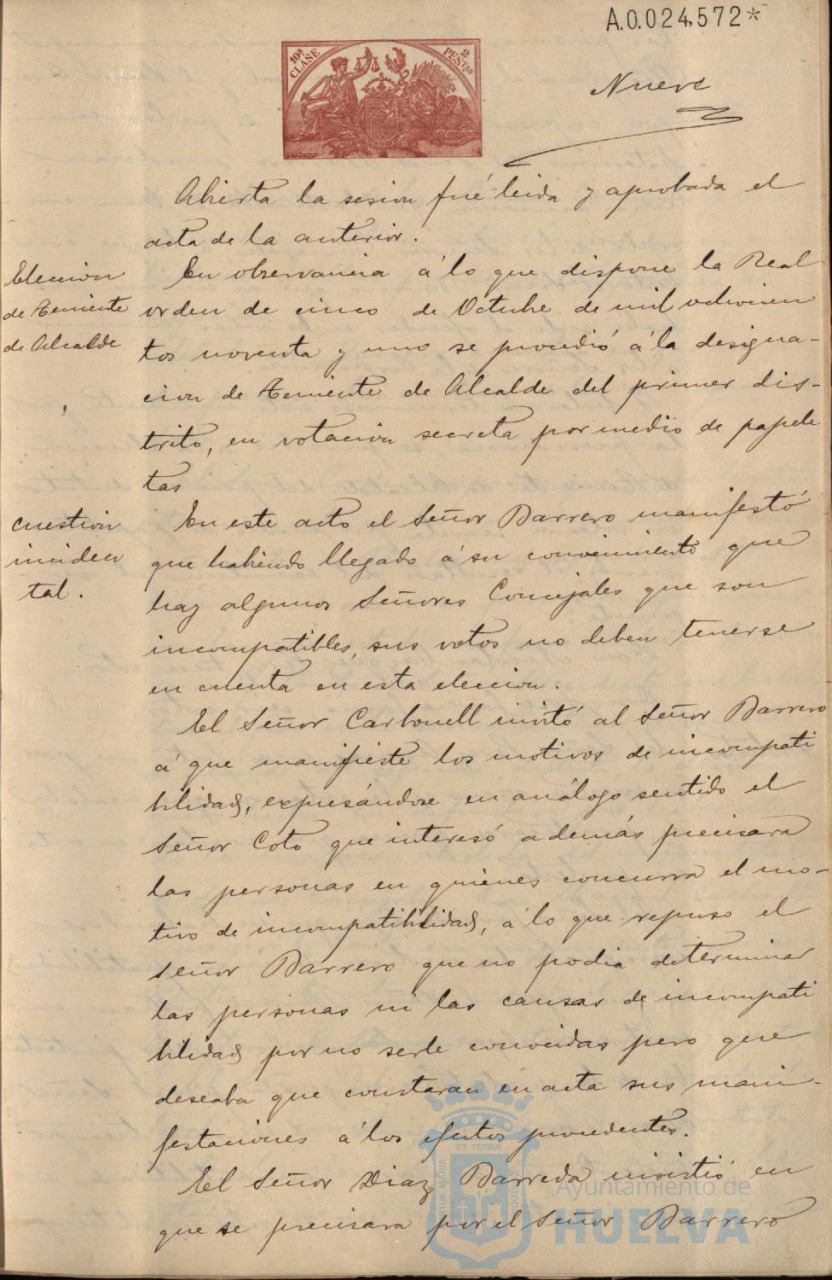 A.0.024.572*
10ª CLASE 2 PESTAS
Nueve
Abierta la sesion fué leida y aprobada el
acta de la anterior.
Eleccion
de Teniente
de Alcalde
En observancia á lo que dispone la Real
orden de cinco de Octubre de mil ochocien
tos noventa y uno se procedió á la designa-
cion de Teniente de Alcalde del primer dis-
trito, en votacion secreta por medio de papele
tas
cuestion
inciden
tal.
En este acto el Señor Barrero manifestó
que habiendo llegado á su convencimiento que
hay algunos Señores Concejales que son
incompatibles, sus votos no deben tenerse
en cuenta en esta eleccion.
El Señor Carbonell invitó al Señor Barrero
á que manifieste los motivos de incompati
bilidad, expresándose en análogo sentido el
Señor Coto que interesó además precisara
las personas en quienes concurra el mo-
tivo de incompatibilidad, á lo que repuso el
Señor Barrero que no podia determinar
las personas ni las causas de incompati
bilidad por no serle conocidas pero que
deseaba que constaran en acta sus mani-
festaciones á los efectos procedentes.
El Señor Diaz Barreda insistió en
que se precisara por el Señor Barrero
Ayuntamiento de
HUELVA